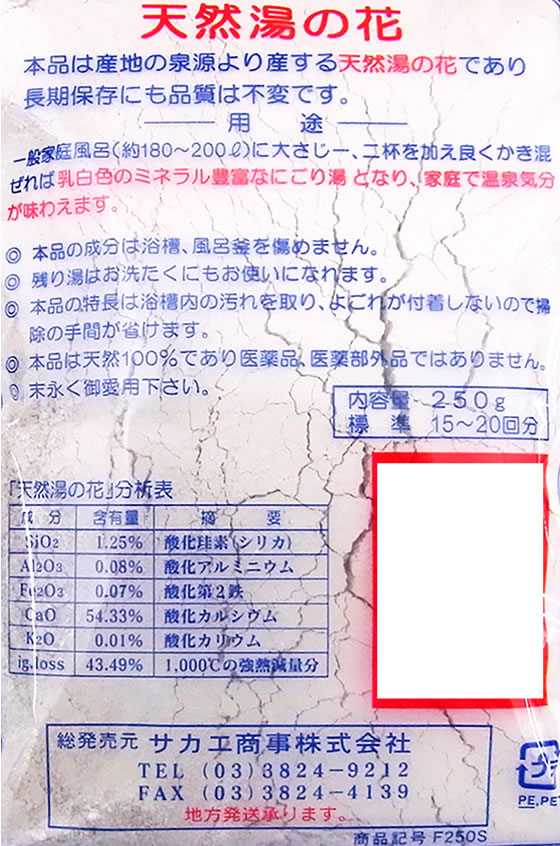 天然湯の花
本品は産地の泉源より産する天然湯の花であり
長期保存にも品質は不変です。
用　途
一般家庭風呂(約180～200ℓ)に大さじ一、二杯を加え良くかき混
ぜれば乳白色のミネラル豊富なにごり湯となり、家庭で温泉気分
が味わえます。
◎ 本品の成分は浴槽、風呂釜を傷めません。
◎ 残り湯はお洗たくにもお使いになれます。
◎ 本品の特長は浴槽内の汚れを取り、よごれが付着しないので掃
除の手間が省けます。
◎ 本品は天然100%であり医薬品、医薬部外品ではありません。
◎ 末永く御愛用下さい。
内容量　250g
標　準　15～20回分
「天然湯の花」分析表
成　分　含有量　摘　要
SiO2 1.25% 酸化珪素(シリカ)
Al2O3 0.08% 酸化アルミニウム
Fe2O3 0.07% 酸化第2鉄
CaO 54.33% 酸化カルシウム
K2O 0.01% 酸化カリウム
ig.loss 43.49% 1,000℃の強熱減量分
総発売元 サカエ商事株式会社
TEL (03)3824-9212
FAX (03)3824-4139
地方発送承ります。
プラ
PE,PET
商品記号 F250S